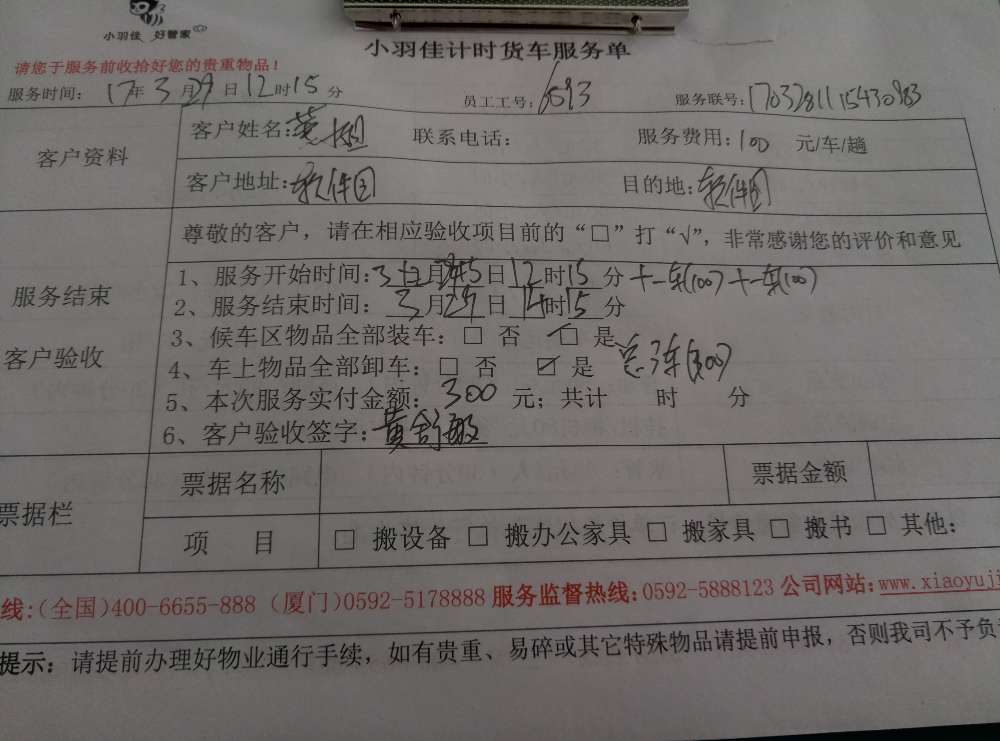 小羽佳 好管家
小羽佳计时货车服务单
请您于服务前收拾好您的贵重物品!
服务时间: 17年3月29日12时15分 员工工号: 1693 服务联号: 1703281115430983
客户资料
客户姓名: 联系电话: 服务费用: 100 元/车/趟
客户地址: 软件园 目的地: 软件园
服务结束
客户验收
尊敬的客户，请在相应验收项目前的“□”打“√”，非常感谢您的评价和意见
1、服务开始时间: 3月 日12时15分 +一车(100) +一车(100)
2、服务结束时间: 3月29日14时15分
3、候车区物品全部装车: □ 否 □ 是
4、车上物品全部卸车: □ 否 ☑ 是 总3车(300)
5、本次服务实付金额: 300 元; 共计 时 分
6、客户验收签字: 黄舒敏
票据栏
票据名称 票据金额
项 目 □ 搬设备 □ 搬办公家具 □ 搬家具 □ 搬书 □ 其他:
线:(全国)400-6655-888 (厦门)0592-5178888 服务监督热线:0592-5888123 公司网站:www.xiaoyuji
提示: 请提前办理好物业通行手续，如有贵重、易碎或其它特殊物品请提前申报，否则我司不予负